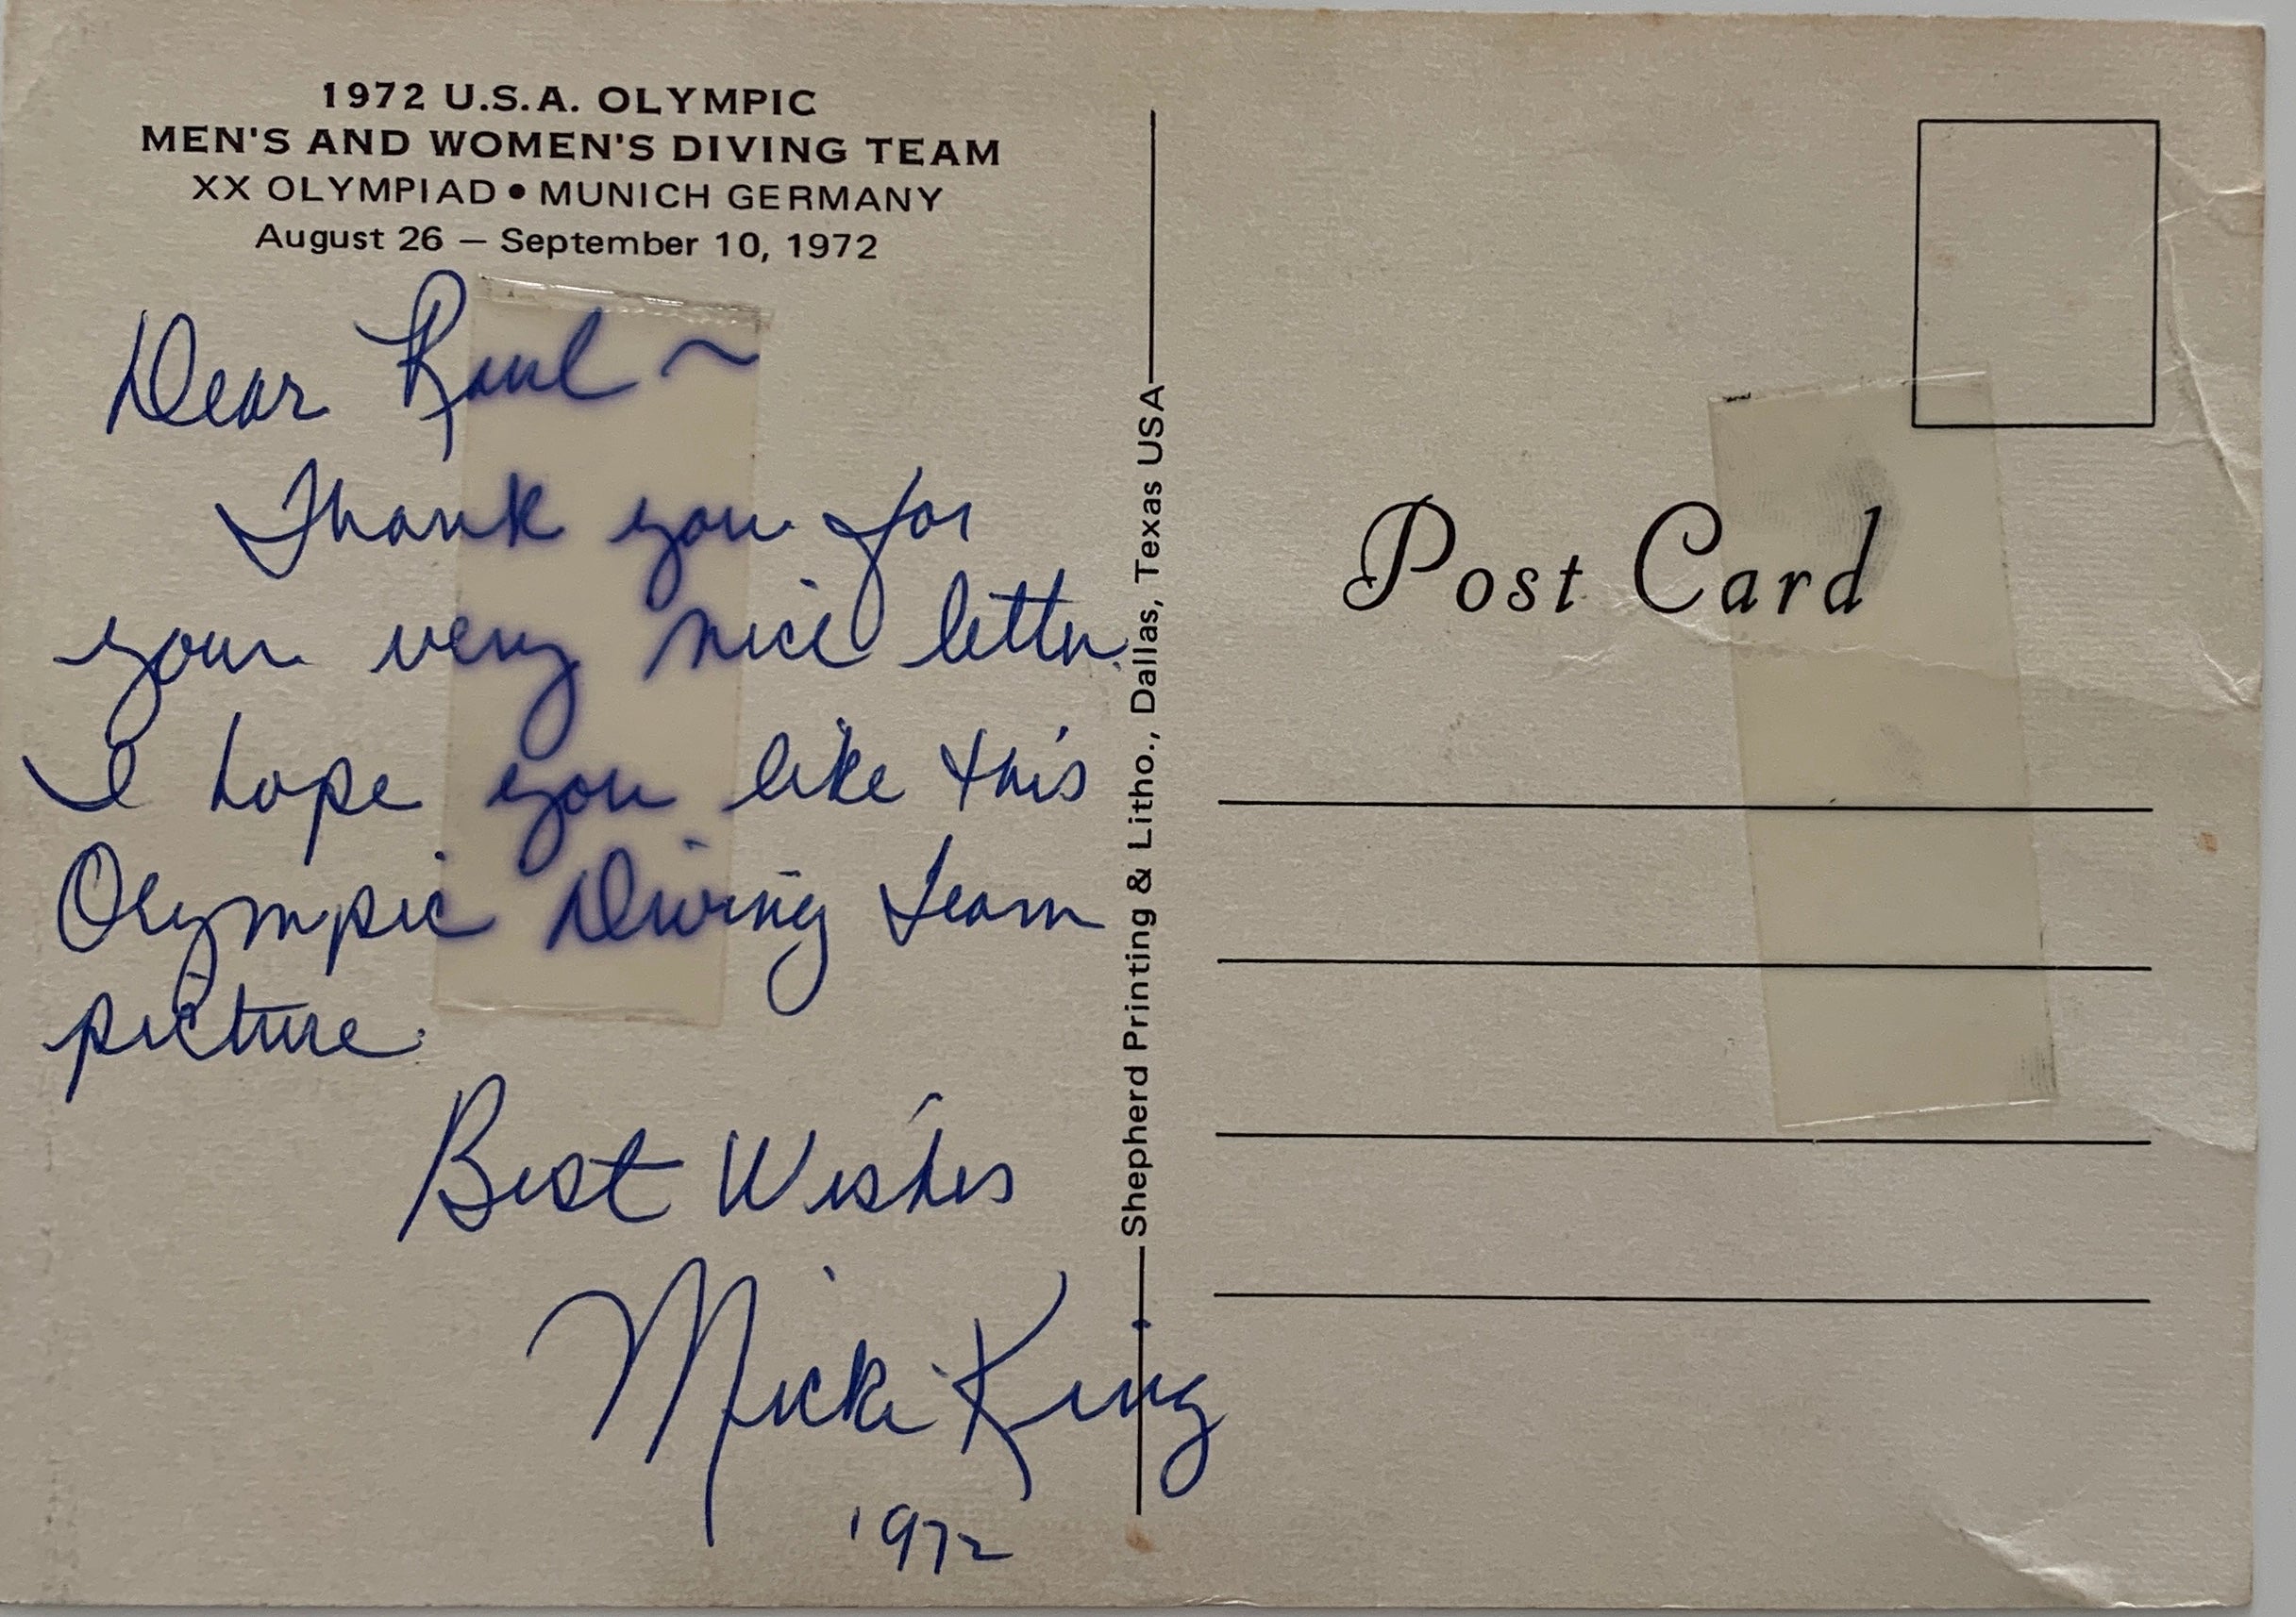 1972 U.S.A. OLYMPIC
MEN'S AND WOMEN'S DIVING TEAM
XX OLYMPIAD • MUNICH GERMANY
August 26 — September 10, 1972
Dear Raul ~
Thank you for
your very nice letter.
I hope you like this
Olympic Diving Team
picture.
Best Wishes
Micki King
1972
Shepherd Printing & Litho., Dallas, Texas USA
Post Card